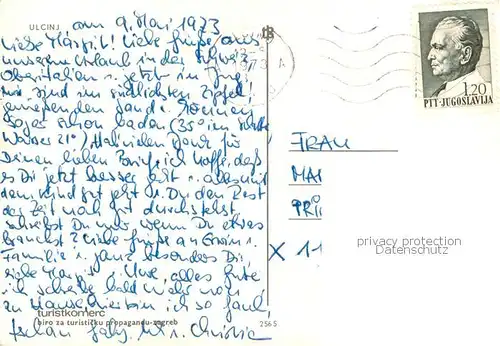 ULCINJ
am 9. Mai 1973
Liebe Margit! Liebe Grüsse aus
unserem Urlaub in der Schweiz
Oberitalien u. jetzt in Jug.
wir sind im südlichsten Zipfel!
Sand u. können
sogar schon baden (35° im
Wasser 21°) Hab vielen Dank für
Deinen lieben Brief, ich hoffe, daß
es Dir jetzt besser geht u. alles mit
dem Kind gut geht u. Du den Rest
der Zeit noch gut durchstehst
schreibst Du mir wenn Du etwas
brauchst? Liebe Grüsse an Erwin u.
Familie u. ganz besonders Dir,
liebe Margit u. Uwe, alles Gute
ich schreibe bald mehr von
zu Hause, hier bin ich so faul,
u. Christa
turistkomerc
biro za turističku propagandu-zagreb
2565
1.20
PTT-JUGOSLAVIJA
FRAU
MA
PRI
X 1-1
privacy protection
Datenschutz